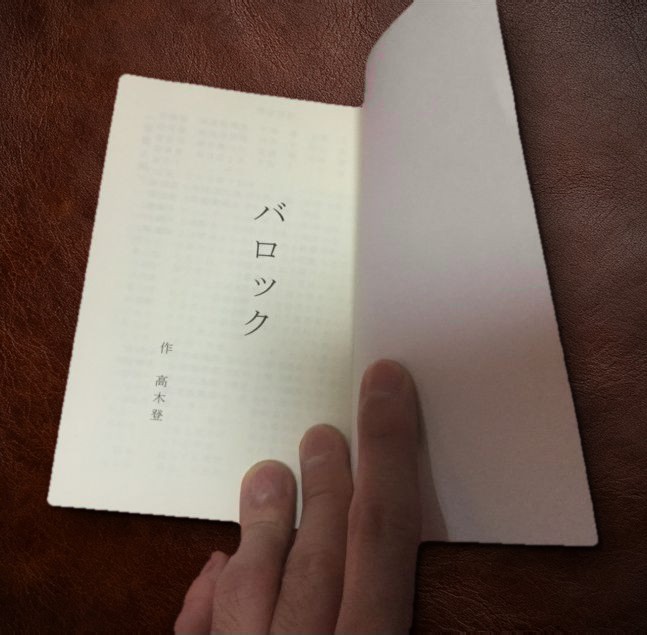 バロック
作 高木登